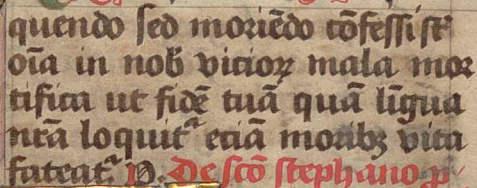 quendo sed moriēdo cōfessi st̄
oīa in nob̄ vicioꝝ mala mor
tifica ut fidē tuā quā lingua
nr̄a loquit᷑ eciā moribꝫ vita
fateat᷑ p. De scō stephano p